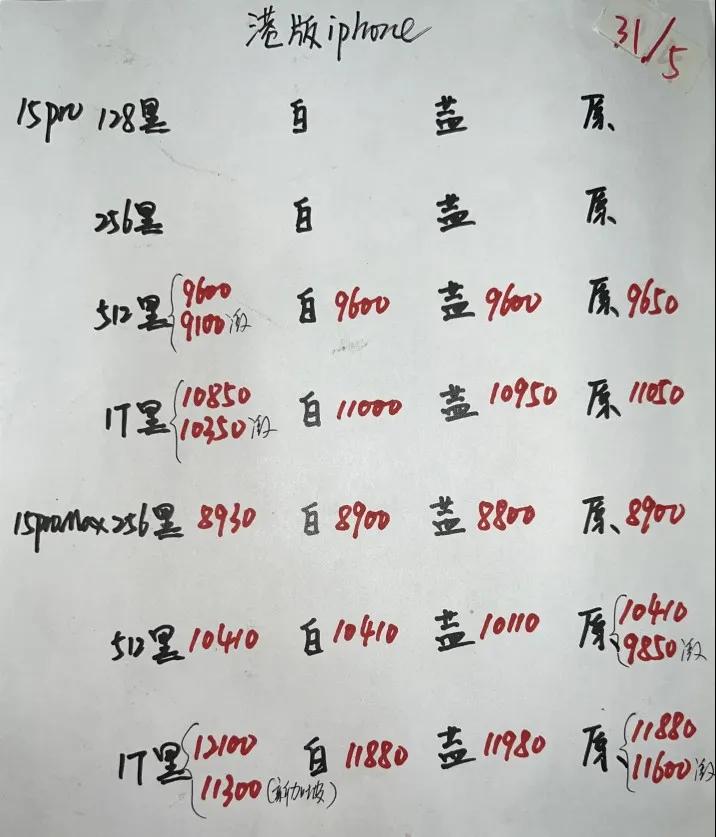 港版iphone
31/5
15pro 128黑 白 蓝 原
256黑 白 蓝 原
512黑 9600 白 9600 蓝 9600 原 9650
9100激
1T黑 10850 白 11000 蓝 10950 原 11050
10350激
15promax256黑 8930 白 8900 蓝 8800 原 8900
512黑 10410 白 10410 蓝 10110 原 10410
9850激
1T黑 12100 白 11880 蓝 11980 原 11880
11300(新加坡) 11600激